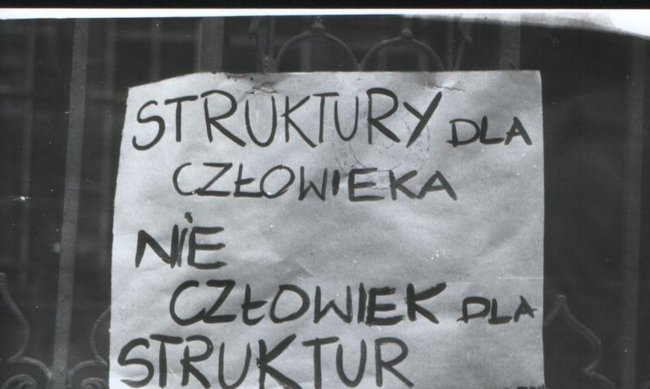 STRUKTURY DLA
CZŁOWIEKA
NIE
CZŁOWIEK DLA
STRUKTUR